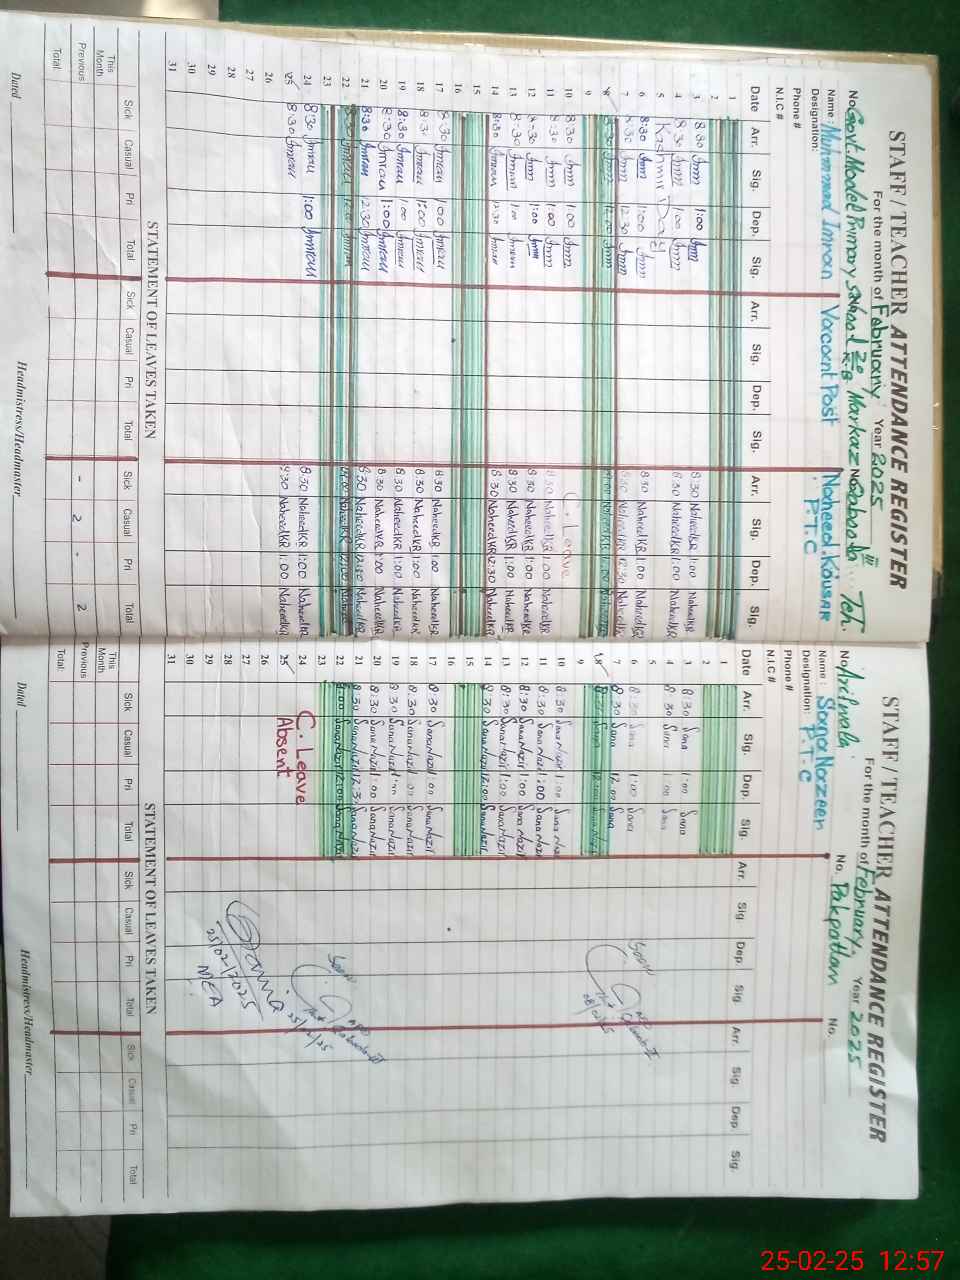 STAFF / TEACHER ATTENDANCE REGISTER
For the month of February Year 2025
No. Govt. Model Primary School 20 K.B Markaz No. III Teh.
Name: Muhammad Imran Vacant Post Naheed Kousar
Designation: P.T.C
Phone #
N.I.C #
Date Arr. Sig. Dep. Sig. Arr. Sig. Dep. Sig. Arr. Sig. Dep. Sig.
1
2
3 8:30 Imm 1:00 Imm 8:30 NaheedKR 1:00 NaheedKR
4 8:30 Imm 1:00 Imm 8:30 NaheedKR 1:00 NaheedKR
5 Kashmir Day
6 8:30 Imm 1:00 Imm 8:30 NaheedKR 1:00 NaheedKR
7 8:30 Imm 12:30 Imm 8:30 NaheedKR 12:30 NaheedKR
8 Imm 12:00 Imm
9
10 8:30 Imm 1:00 Imm C. Leave
11 8:30 Imm 1:00 Imm 8:30 NaheedKR 1:00 NaheedKR
12 8:30 Imm 1:00 Imm 8:30 NaheedKR 1:00 NaheedKR
13 8:30 Imran 1:00 Imran 8:30 NaheedKR 1:00 NaheedKR
14 8:30 Imran 12:30 Imran 8:30 NaheedKR 12:30 NaheedKR
15
16
17 8:30 Imran 1:00 Imran 8:30 NaheedKR 1:00 NaheedKR
18 8:30 Imran 1:00 Imran 8:30 NaheedKR 1:00 NaheedKR
19 8:30 Imran 1:00 Imran 8:30 NaheedKR 1:00 NaheedKR
20 8:30 Imran 1:00 Imran 8:30 NaheedKR 1:00 NaheedKR
21 8:30 Imran 12:30 Imran 8:30 NaheedKR 12:30 NaheedKR
22 Imran Imran NaheedKR 12:00 Naheed
23
24 8:30 Imran 1:00 Imran 8:30 NaheedKR 1:00 NaheedKR
25 8:30 Imran 8:30 NaheedKR 1:00 NaheedKR
26
27
28
29
30
31
STATEMENT OF LEAVES TAKEN
Sick Casual Pri Total Sick Casual Pri Total Sick Casual Pri Total
This Month
Previous - 2 - 2
Total
Dated Headmistress/Headmaster
STAFF / TEACHER ATTENDANCE REGISTER
For the month of February, Year 2025
No. Arifwala No. Pakpattan No.
Name: Sana Nazeer
Designation: P.T.C
Phone #
N.I.C #
Date Arr. Sig. Dep. Sig. Arr. Sig. Dep. Sig. Arr. Sig. Dep. Sig.
1
2
3 8:30 Sana 1:00 Sana
4 8:30 Sana 1:00 Sana
5
6 8:30 Sana 1:00 Sana
7 8:30 Sana 12:00 Sana
8 Sana
9
10 8:30 Sana Nazir 1:00 Sana Naz
11 8:30 Sana Nazir 1:00 Sana Nazir
12 8:30 Sana Nazir 1:00 Sana Nazir
13 8:30 Sana Nazir 1:00 Sana Nazir
14 8:30 Sana Nazir 12:00 Sana Nazir
15
16
17 8:30 Sana Nazil 1:00 Sana Nazir
18 8:30 Sana Nazil 1:00 Sana Nazir
19 8:30 Sana Nazil 1:00 Sana Nazir
20 8:30 Sana Nazil 1:00 Sana Nazir
21 8:30 Sana Nazil 12:3 Sana Nazir
22 Sana Nazil 12:00 Sana Nazir
23
24 C. Leave
25 Absent
26
27
28
29
30
31
25/02/2025
MEA
STATEMENT OF LEAVES TAKEN
Sick Casual Pri Total Sick Casual Pri Total Sick Casual Pri Total
This Month
Previous
Total:
Dated Headmistress/Headmaster
25-02-25 12:57